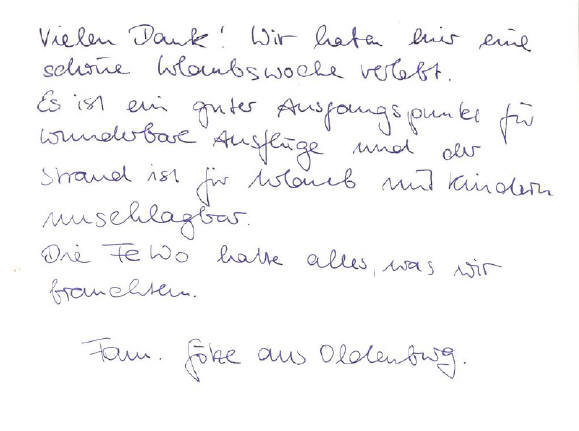 Vielen Dank! Wir haben hier eine
schöne Urlaubswoche verlebt.
Es ist ein guter Ausgangspunkt für
wunderbare Ausflüge und der
Strand ist für Urlaub mit Kindern
unschlagbar.
Die FeWo hatte alles, was wir
brauchten.
Fam. Götze aus Oldenburg.